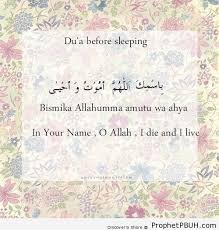 Du'a before sleeping
بِاسْمِكَ اللَّهُمَّ أَمُوْتُ وَ أَحْيَـٰى
Bismika Allahumma amutu wa ahya
In Your Name , O Allah , I die and I live
Discover & Share ProphetPBUH.com